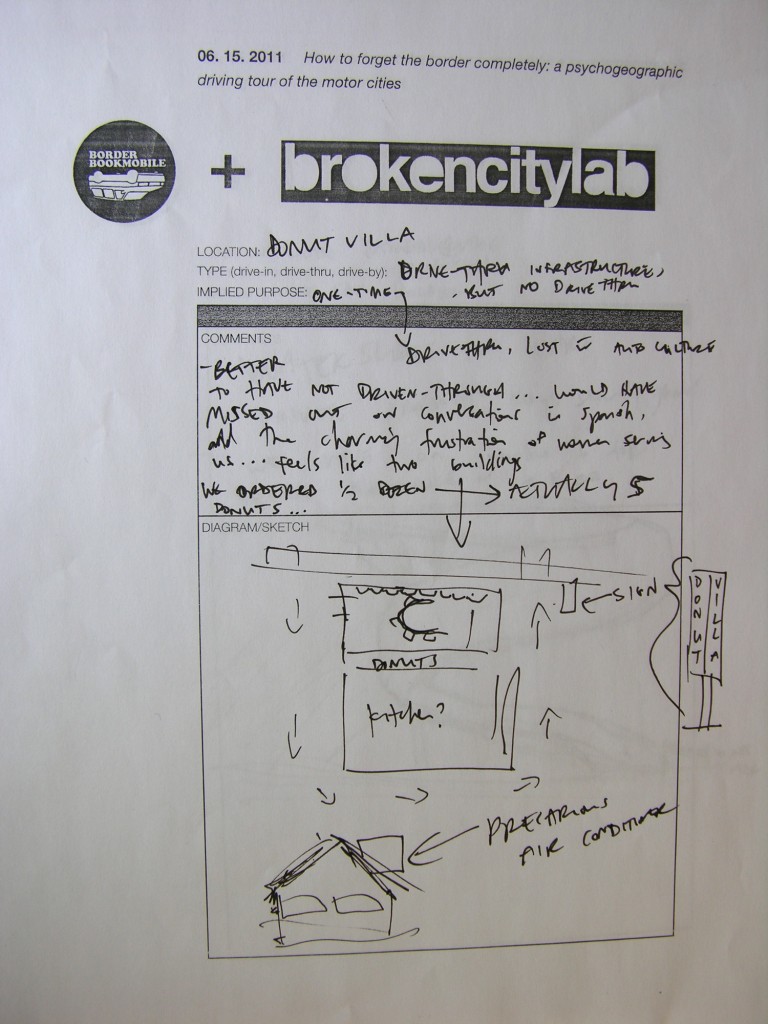 06. 15. 2011 How to forget the border completely: a psychogeographic
driving tour of the motor cities
BORDER
BOOKMOBILE
+
brokencitylab
LOCATION: DONUT VILLA
TYPE (drive-in, drive-thru, drive-by): DRIVE-THRU INFRASTRUCTURE,
IMPLIED PURPOSE: ONE-TIME - BUT NO DRIVE THRU
COMMENTS
DRIVE-THRU, LOST IN AUTO CULTURE
- BETTER
TO HAVE NOT DRIVEN-THROUGH... WOULD HAVE
MISSED OUT ON CONVERSATIONS in Spanish,
and the charming frustration of women serving
us... feels like two buildings
WE ORDERED 1/2 DOZEN → ACTUALLY 5
DONUTS...
DIAGRAM/SKETCH
SIGN
DONUT
VILLA
DONUTS
kitchen?
PRECARIOUS
AIR CONDITIONER